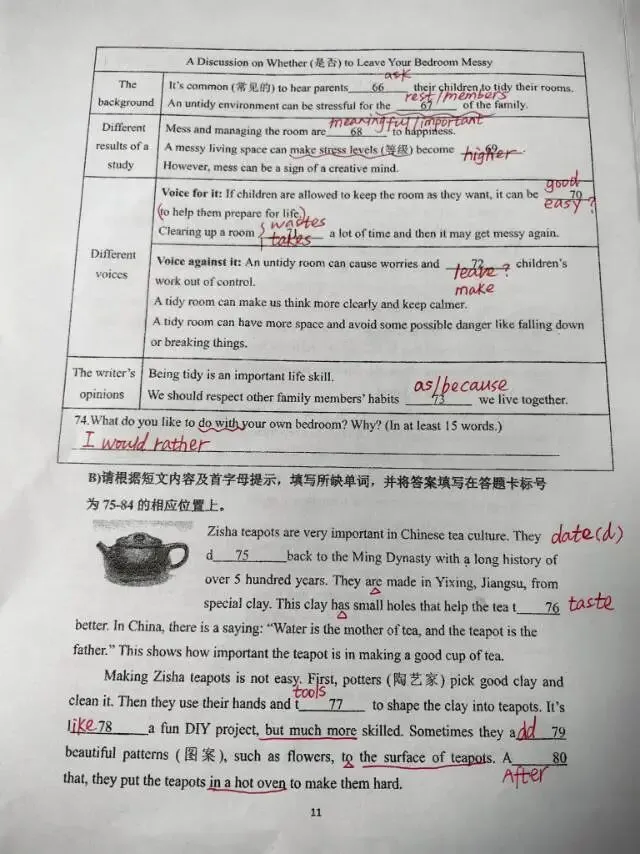 A Discussion on Whether (是否) to Leave Your Bedroom Messy
The background
It's common (常见的) to hear parents 66 ask their children to tidy their rooms.
An untidy environment can be stressful for the 67 rest/members of the family.
Different results of a study
Mess and managing the room are 68 meaningful/important to happiness.
A messy living space can make stress levels (等级) become 69 higher.
However, mess can be a sign of a creative mind.
Different voices
Voice for it: If children are allowed to keep the room as they want, it can be 70 good easy?
(to help them prepare for life.)
Clearing up a room 71 wastes takes a lot of time and then it may get messy again.
Voice against it: An untidy room can cause worries and 72 leave? make children's
work out of control.
A tidy room can make us think more clearly and keep calmer.
A tidy room can have more space and avoid some possible danger like falling down
or breaking things.
The writer's opinions
Being tidy is an important life skill.
We should respect other family members' habits 73 as/because we live together.
74.What do you like to do with your own bedroom? Why? (In at least 15 words.)
I would rather
B)请根据短文内容及首字母提示，填写所缺单词，并将答案填写在答题卡标号
为 75-84 的相应位置上。
Zisha teapots are very important in Chinese tea culture. They
d 75 back to the Ming Dynasty with a long history of date(d)
over 5 hundred years. They are made in Yixing, Jiangsu, from
special clay. This clay has small holes that help the tea t 76 taste
better. In China, there is a saying: "Water is the mother of tea, and the teapot is the
father." This shows how important the teapot is in making a good cup of tea.
Making Zisha teapots is not easy. First, potters (陶艺家) pick good clay and
clean it. Then they use their hands and t 77 tools to shape the clay into teapots. It's
like 78 a fun DIY project, but much more skilled. Sometimes they add 79
beautiful patterns (图案), such as flowers, to the surface of teapots. A 80 After
that, they put the teapots in a hot oven to make them hard.
11